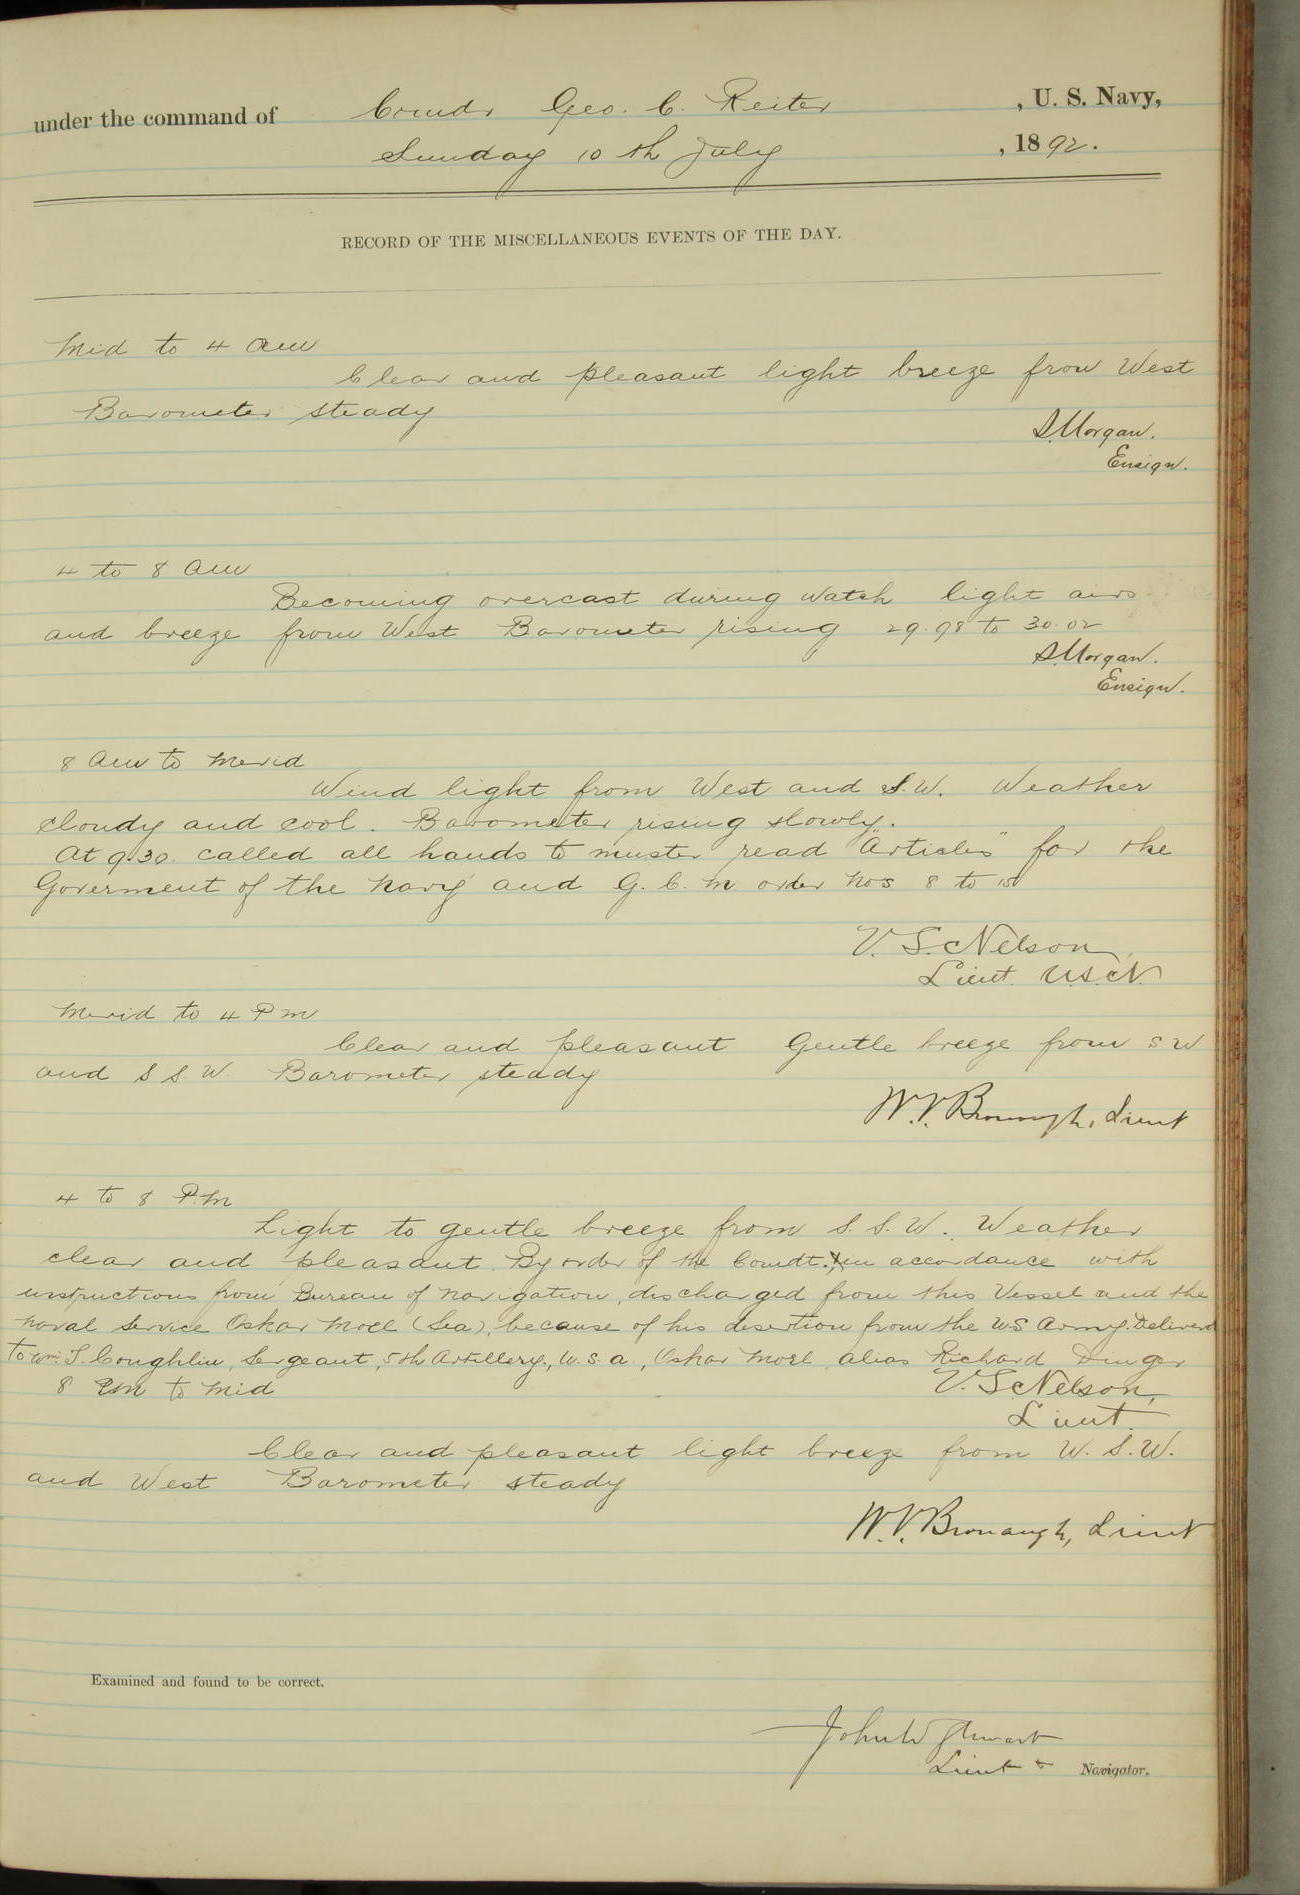 under the command of Comdr Geo. C. Reiter , U. S. Navy,
Sunday 10th July , 1892.
RECORD OF THE MISCELLANEOUS EVENTS OF THE DAY.
Mid to 4 am
Clear and pleasant light breeze from West
Barometer steady
S. Morgan.
Ensign.
4 to 8 am
Becoming overcast during watch light airs
and breeze from West Barometer rising 29.98 to 30.02
S. Morgan.
Ensign.
8 am to Merid
Wind light from West and S.W. Weather
cloudy and cool. Barometer rising slowly.
At 9.30. called all hands to muster read "Articles" for the
Goverment of the Navy and G. C. M order Nos 8 to 15
V. S. Nelson,
Lieut. U.S.N.
Merid to 4 P m
Clear and pleasant Gentle breeze from S W
and S S. W. Barometer steady
W. V. Bronaugh, Lieut
4 to 8 P.M
Light to gentle breeze from S. S. W. Weather
clear and pleasant. By order of the Comdt. in accordance with
instructions from Bureau of Navigation, discharged from this Vessel and the
Naval Service Oskar Moel (Sea), because of his desertion from the U S Army. Delivered
to Wm. S. Coughlin, Sergeant, 5th Artillery, U. S. a., Oskar Moel alias Richard Dinger
8 Pm to Mid V. S. Nelson,
Lieut.
Clear and pleasant light breeze from W. S. W.
and West Barometer steady
W. V. Bronaugh, Lieut
Examined and found to be correct.
John W Stewart
Lieut & Navigator.